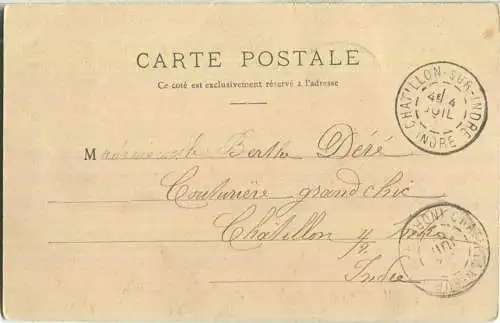 CARTE POSTALE
Ce côté est exclusivement réservé à l'adresse
CHATILLON-SUR-INDRE
4
JUIL
INDRE
Mademoiselle Berthe Déré
Couturière grand chic
Châtillon s/n Indre
Indre